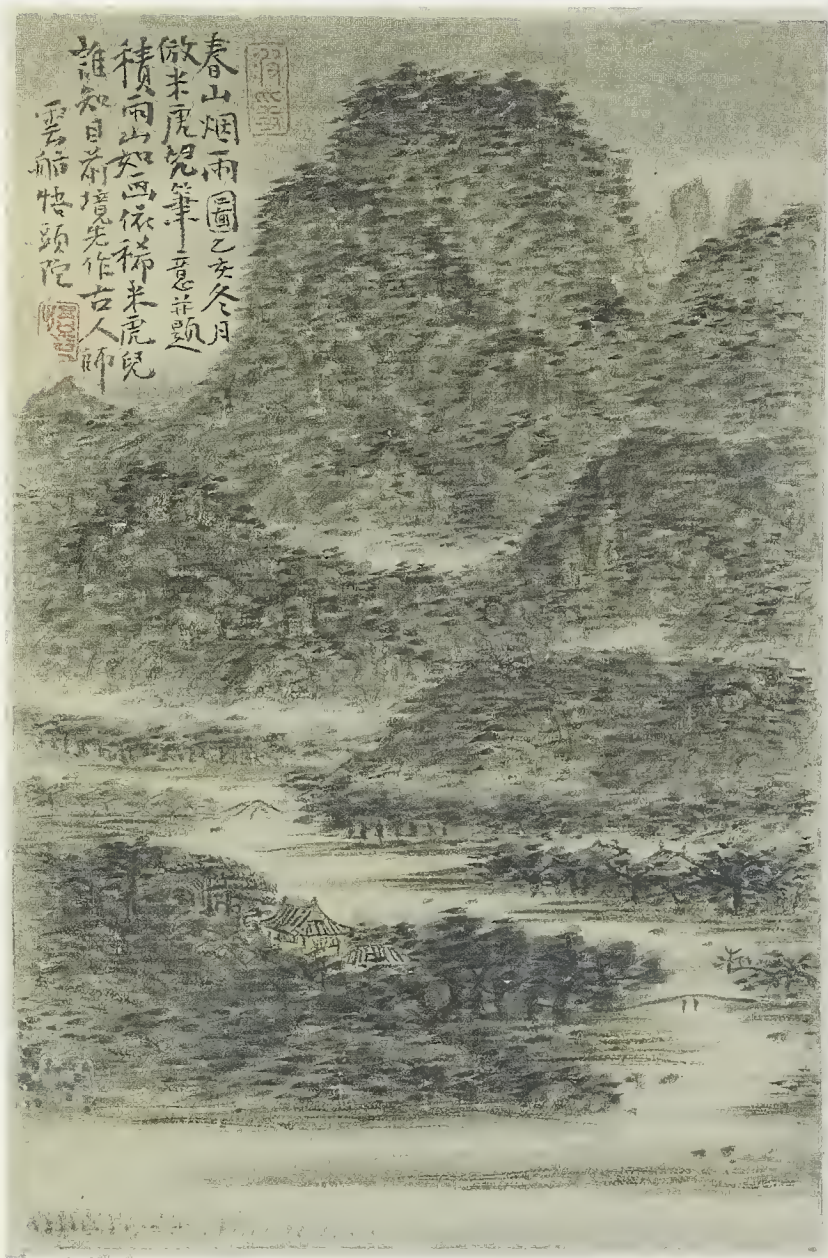 春山烟雨圖乙亥冬月
倣米虎児筆意并題
積雨山如画依稀米虎兒
誰知目前境先作古人師
雲船悟頭陀